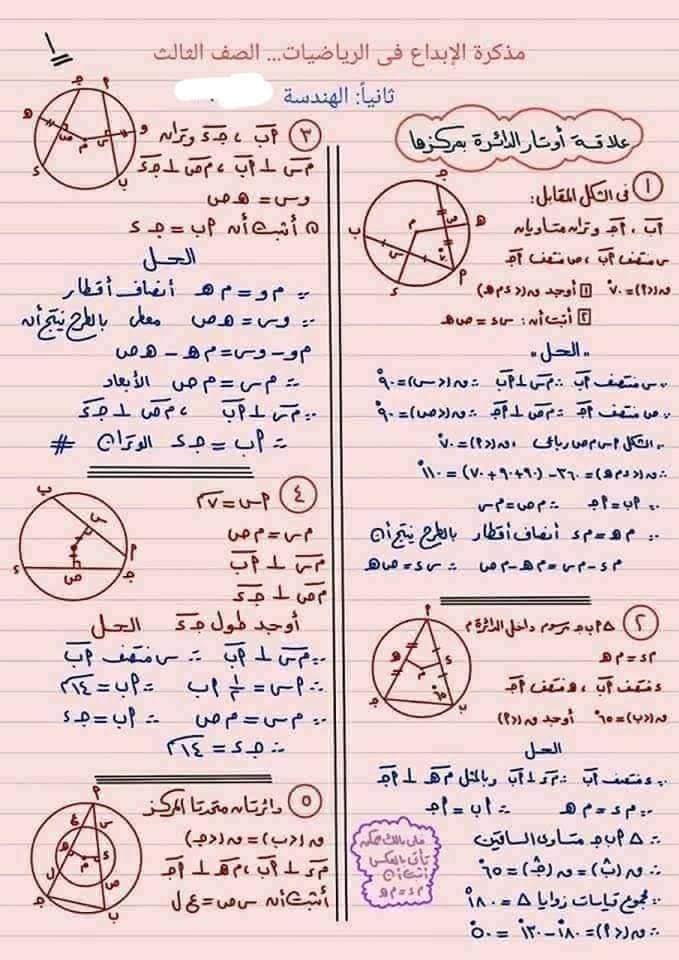 ١
مذكرة الإبداع فى الرياضيات... الصف الثالث
ثانياً: الهندسة
علاقة أوتار الدائرة بمركزها
١ فى الشكل المقابل:
أب ، أجـ وتران متساويان
س منتصف أب ، ص منتصف أجـ
ق(<أ) = ٧٠° ١ أوجد ق(<د م هـ)
٢ أثبت أن: س د = ص هـ
"الحل"
∵ س منتصف أب ∴ م س ⊥ أب ∴ ق(<س) = ٩٠°
∵ ص منتصف أجـ ∴ م ص ⊥ أجـ ∴ ق(<ص) = ٩٠°
∵ الشكل أ س م ص رباعى ، ق(<أ) = ٧٠°
∴ ق(<د م هـ) = ٣٦٠ - (٩٠ + ٩٠ + ٧٠) = ١١٠°
∵ أب = أجـ ∴ م ص = م س
∵ م هـ = م د أنصاف أقطار بالطرح ينتج أن
م د - م س = م هـ - م ص ∴ س د = ص هـ
٢ △ أ ب جـ مرسوم داخل الدائرة م
م د = م هـ
د منتصف أب ، هـ منتصف أجـ
ق(<ب) = ٦٥° أوجد ق(<أ)
الحل
∵ د منتصف أب ∴ م د ⊥ أب وبالمثل م هـ ⊥ أجـ
∵ م د = م هـ ∴ أب = أجـ
∴ △ أ ب جـ متساوى الساقين
∴ ق(ب) = ق(جـ) = ٦٥°
∵ مجموع قياسات زوايا △ = ١٨٠°
∴ ق(<أ) = ١٨٠° - ١٣٠° = ٥٠°
خلى بالك ممكن
تأتى بالعكس
أثبت أن
م د = م هـ
٣ أب ، جـ د وتران
م س ⊥ أب ، م ص ⊥ جـ د
و س = هـ ص
أثبت أن أب = جـ د
الحل
∵ م و = م هـ أنصاف أقطار
∵ و س = هـ ص معطى بالطرح ينتج أن
م و - و س = م هـ - هـ ص
∴ م س = م ص الأبعاد
∵ م س ⊥ أب ، م ص ⊥ جـ د
∴ أب = جـ د الوتران #
٤ أ س = ٧سم
م س = م ص
م س ⊥ أب
م ص ⊥ جـ د
أوجد طول جـ د الحل
∵ م س ⊥ أب ∴ س منتصف أب
∴ أ س = ١/٢ أب ∴ أب = ١٤سم
∵ م س = م ص ∴ أب = جـ د
∴ جـ د = ١٤سم
٥ دائرتان متحدتا المركز
ق(<ب) = ق(<جـ)
م د ⊥ أب ، م هـ ⊥ أجـ
أثبت أن س ص = ع ل